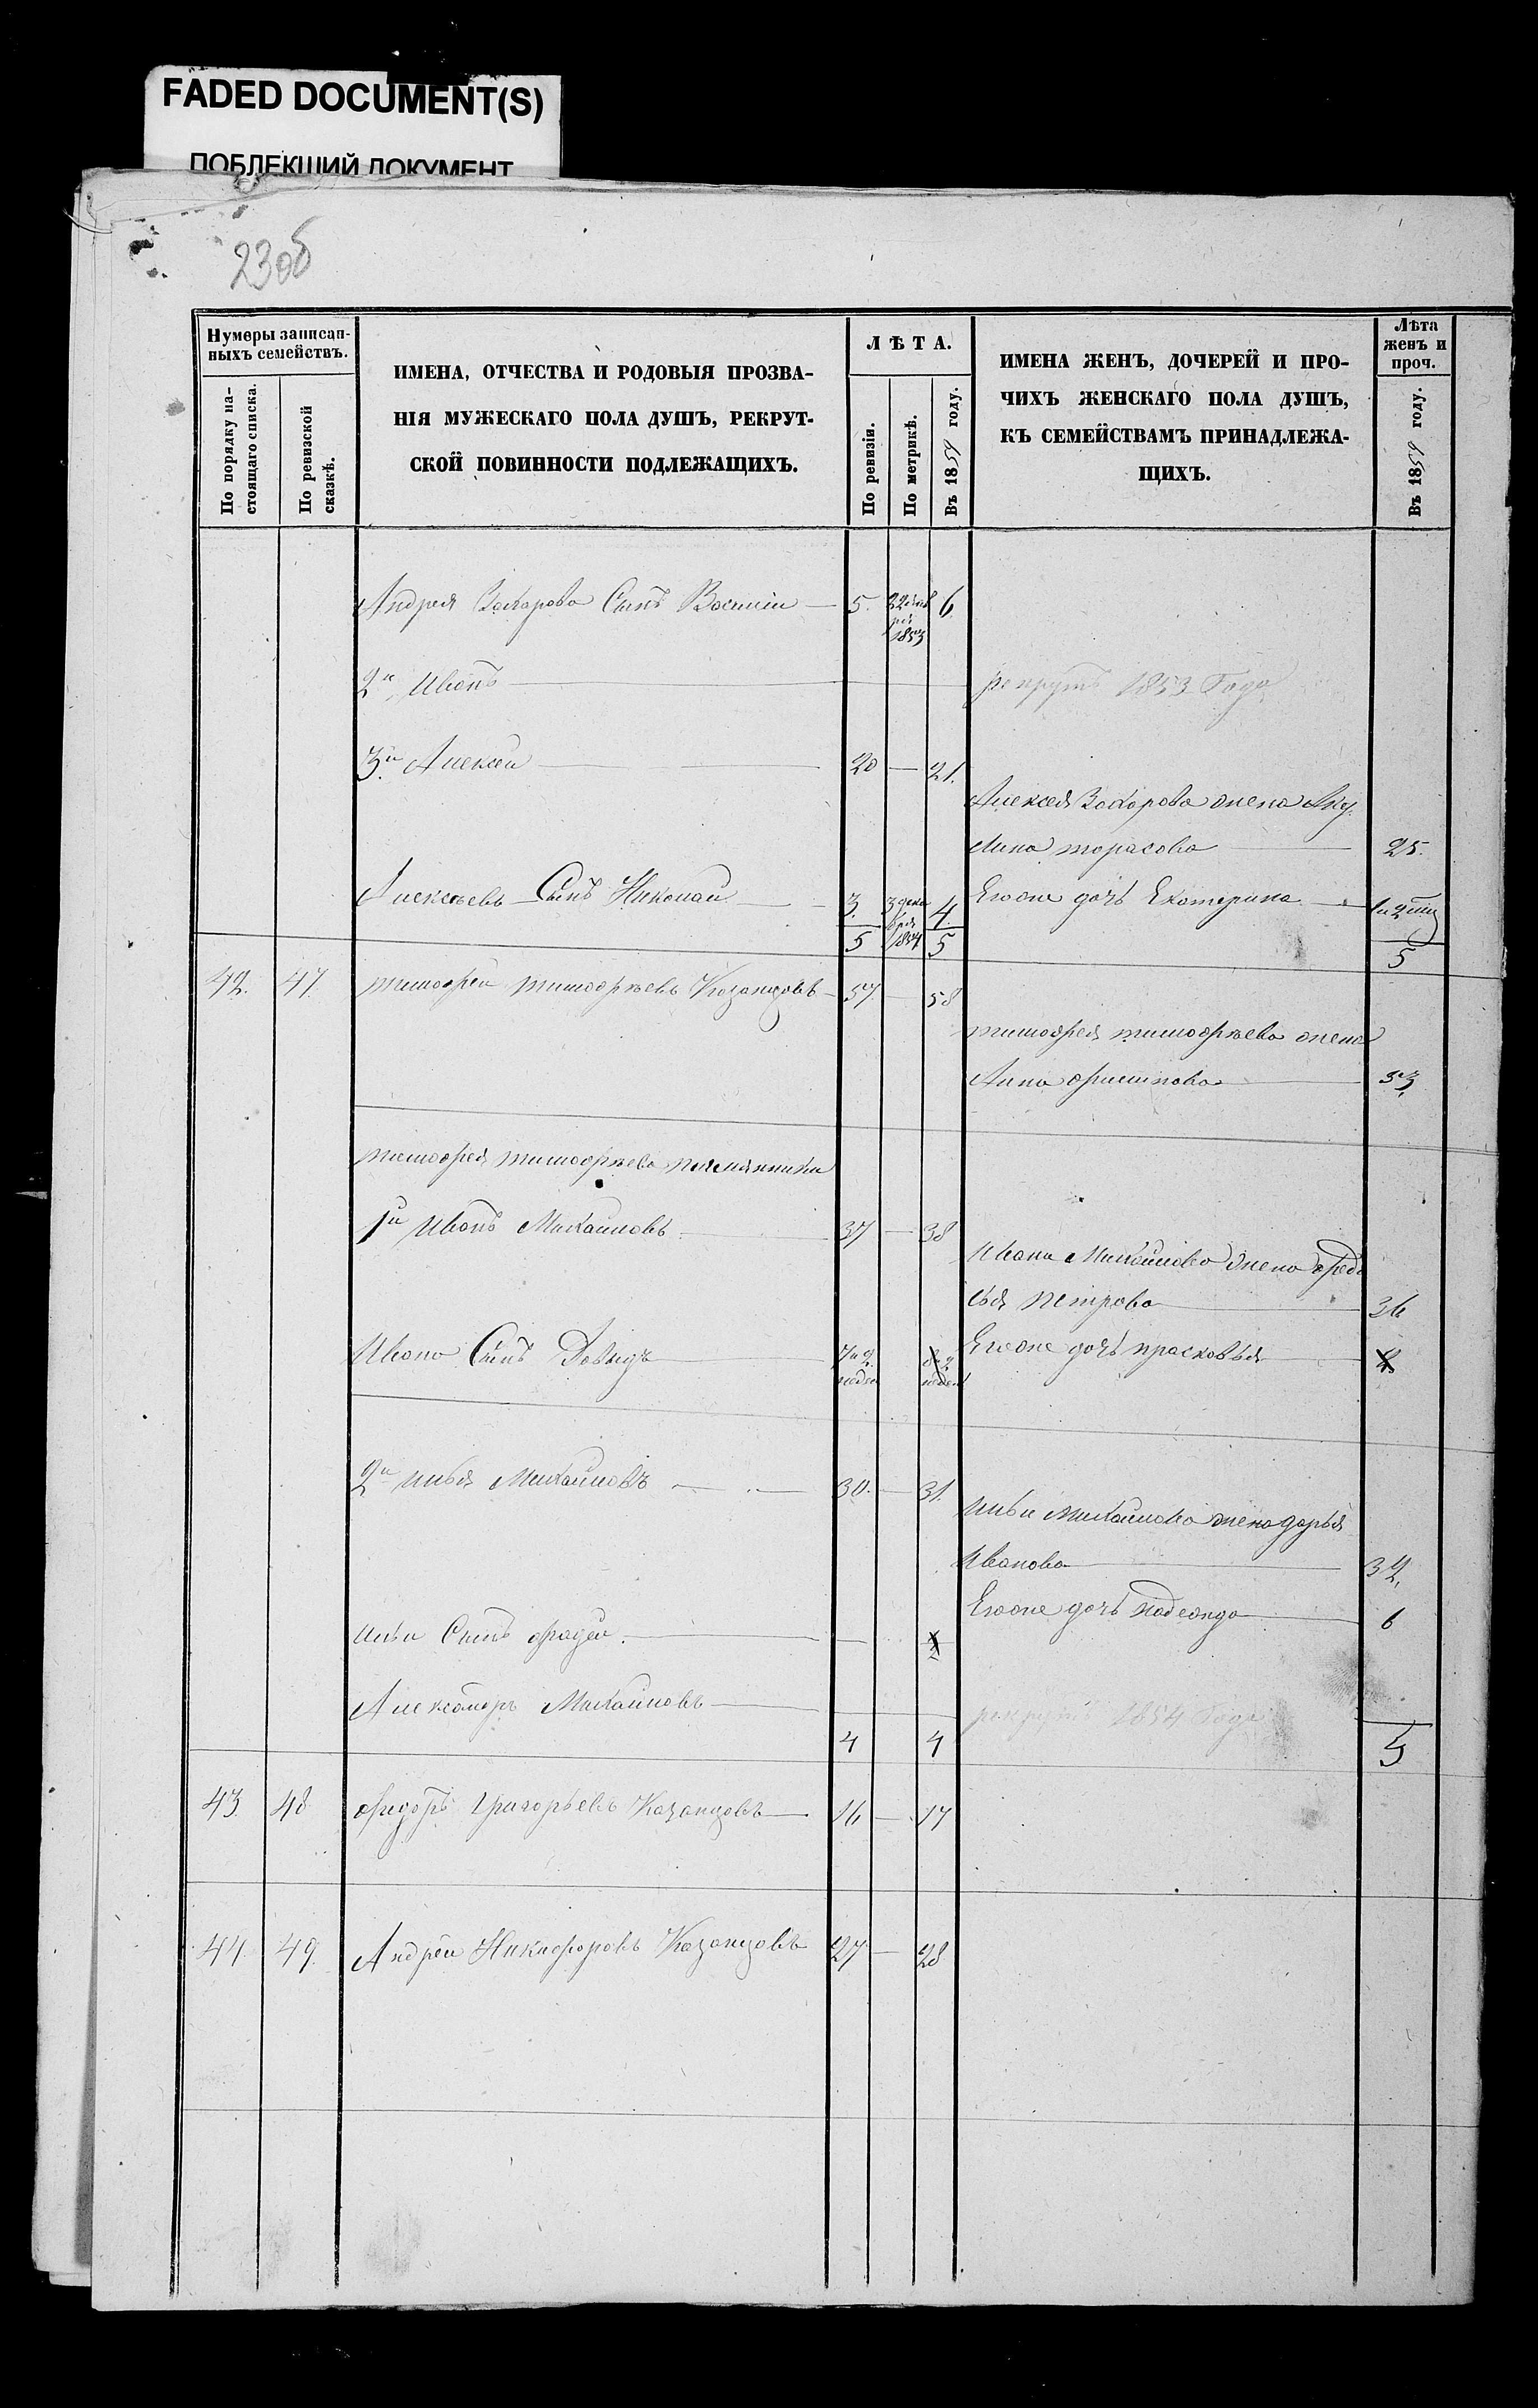 FADED DOCUMENT(S)
ПОБЛЕКШИЙ ДОКУМЕНТ
23об
Нумеры записан-
ныхъ семействъ.
По порядку на-
стоящаго списка.
По ревизской
сказкѣ.
ИМЕНА, ОТЧЕСТВА И РОДОВЫЯ ПРОЗВА-
НІЯ МУЖЕСКАГО ПОЛА ДУШЪ, РЕКРУТ-
СКОЙ ПОВИННОСТИ ПОДЛЕЖАЩИХЪ.
ЛѢТА.
По ревизіи.
По метрикѣ.
Въ 1859 году.
ИМЕНА ЖЕНЪ, ДОЧЕРЕЙ И ПРО-
ЧИХЪ ЖЕНСКАГО ПОЛА ДУШЪ,
КЪ СЕМЕЙСТВАМЪ ПРИНАДЛЕЖА-
ЩИХЪ.
Лѣта
женъ и
проч.
Въ 1859 году.
Андрея Захарова Сынъ Василіи — 5. 22 1853 6
2й Иванъ — рекрутъ 1853 Года
3й Алексеи — 20 — 21.
Алексея Захарова жена Аку
лина тарасова — 25.
Алексѣевъ Сынъ Николаи — 3. 3 дека
бря
1854 4.
Егоже дочь Екатерина — 
5 5 5
42. 47. тимофеи тимофѣевъ Казанцовъ — 57 — 58
тимофея тимофѣева жена
Анна филипова — 53
тимофея тимофѣева племянники
1й Иванъ Михаиловъ — 37 — 38
Ивана Михаилова жена федо
сья петрова — 36
Ивана Сынъ Давыдъ — 7и2 недел 8и2 недел
Егоже дочь прасковья —
2й илья Михаиловъ — 30. — 31.
ильи михаилова жена дарья
Иванова — 32.
Егоже дочь надежда — 6
ильи Сынъ фадеи. —
Александръ Михаиловъ — рекрутъ 1854 Года
4 4 5
43 48 фидоръ Григорьевъ Казанцовъ — 16 — 17
44 49. Андреи Никифоровъ Казанцовъ 27 — 28